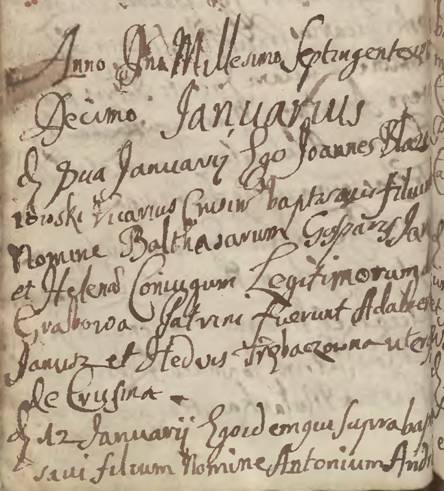 Anno Dni Millesimo Septingentesi
Decimo. Januarius
d 1ma Januarij Ego Joannes
Vicarius baptisavi filium
Nomine Balthasarum Gasparis Jan
et Helena Coniugum Legitimorum d
Grabowa. Patrini fuerunt Adalber
Janusz et Hedvis Trębaczowna uterq
de Crusina
d 12 Januarij Ego idem qui supra bap
savi filium Nomine Antonium Andr